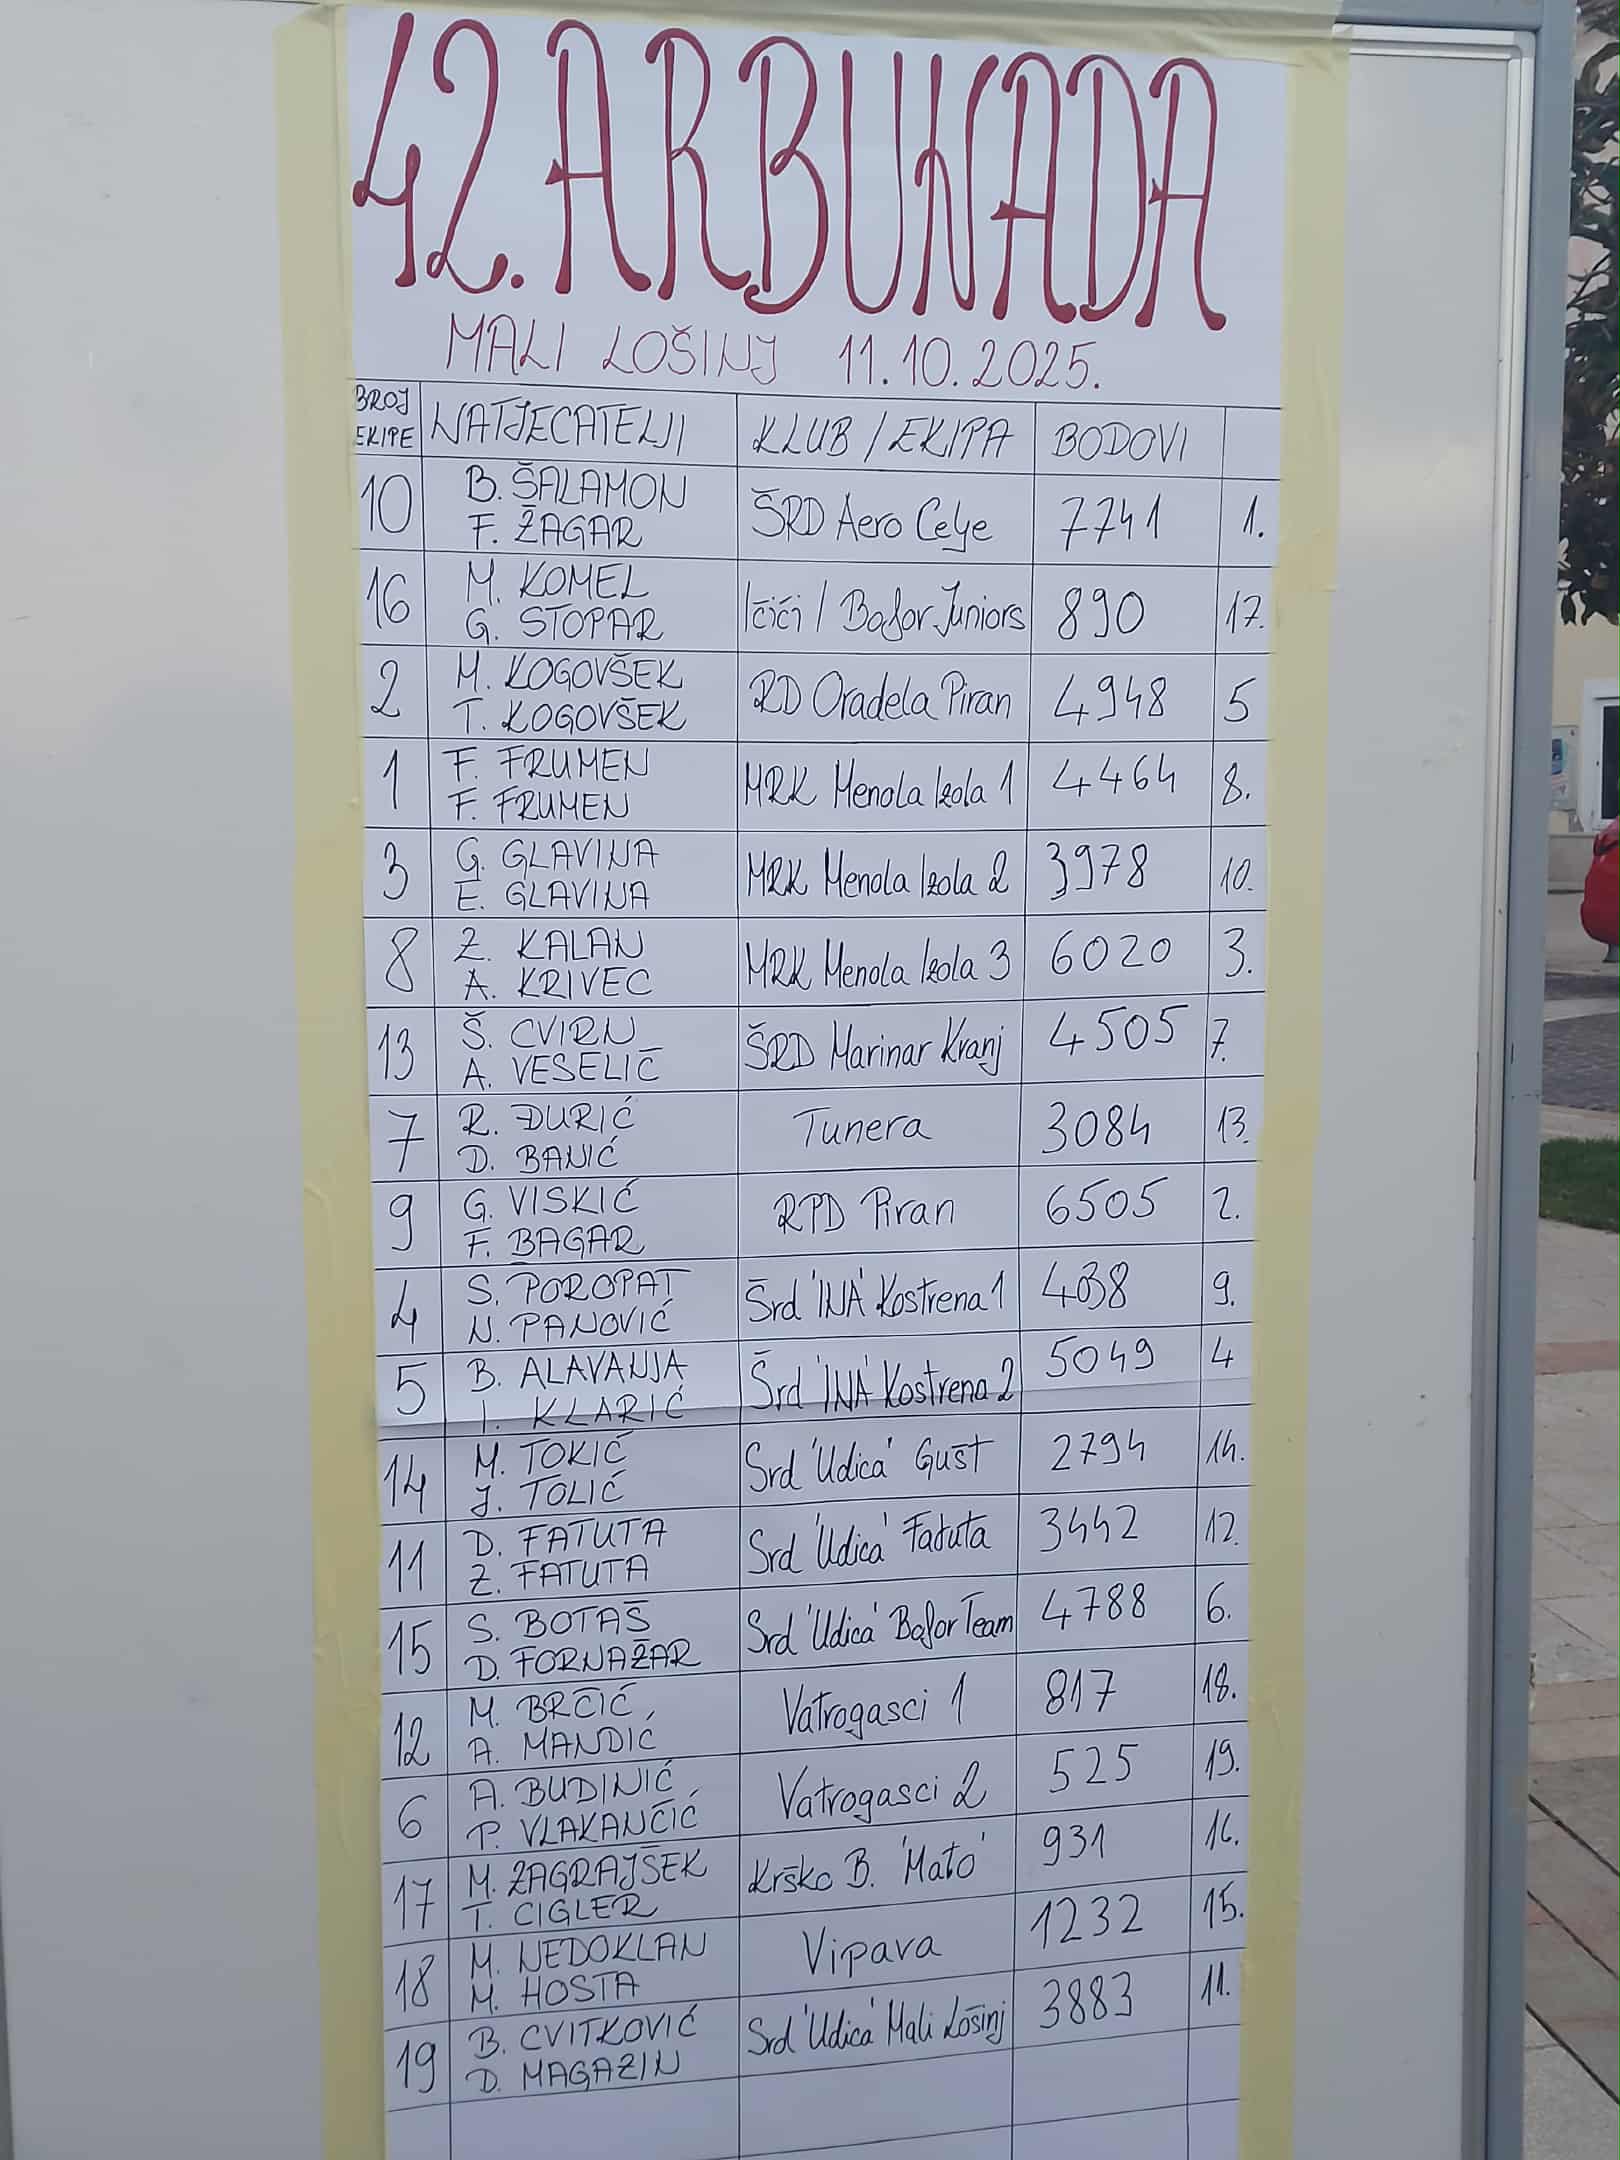 42. ARBUNADA
MALI LOŠINJ 11.10.2025.
BROJ EKIPE NATJECATELJI KLUB / EKIPA BODOVI
10 B. ŠALAMON ŠRD Aero Celje 7741 1.
F. ŽAGAR
16 M. KOMEL Ičići / Bafor Juniors 890 17.
G. STOPAR
2 M. KOGOVŠEK RD Oradela Piran 4948 5
T. KOGOVŠEK
1 F. FRUMEN MRK Menola Izola 1 4464 8.
F. FRUMEN
3 G. GLAVINA MRK Menola Izola 2 3978 10.
E. GLAVINA
8 Z. KALAN MRK Menola Izola 3 6020 3.
A. KRIVEC
13 Š. CVIRN ŠRD Marinar Kranj 4505 7.
A. VESELIČ
7 R. ĐURIĆ Tunera 3084 13.
D. BANIĆ
9 G. VISKIĆ RPD Piran 6505 2.
F. BAGAR
4 S. POROPAT Šrd 'INA' Kostrena 1 4038 9.
N. PANOVIĆ
5 B. ALAVANJA Šrd 'INA' Kostrena 2 5049 4
I. KLARIĆ
14 M. TOKIĆ Srd 'Udica' Gušt 2794 14.
J. TOLIĆ
11 D. FATUTA Srd 'Udica' Fatuta 3442 12.
Z. FATUTA
15 S. BOTAŠ Srd 'Udica' Bafor Team 4788 6.
D. FORNAŽAR
12 M. BRČIĆ Vatrogasci 1 817 18.
A. MANDIĆ
6 A. BUDINIĆ Vatrogasci 2 525 19.
P. VLAKANČIĆ
17 M. ZAGRAJŠEK Krško B. 'Mato' 931 16.
T. CIGLER
18 M. NEDOKLAN Vipava 1232 15.
M. HOSTA
19 B. CVITKOVIĆ Srd 'Udica' Mali Lošinj 3883 11.
D. MAGAZIN